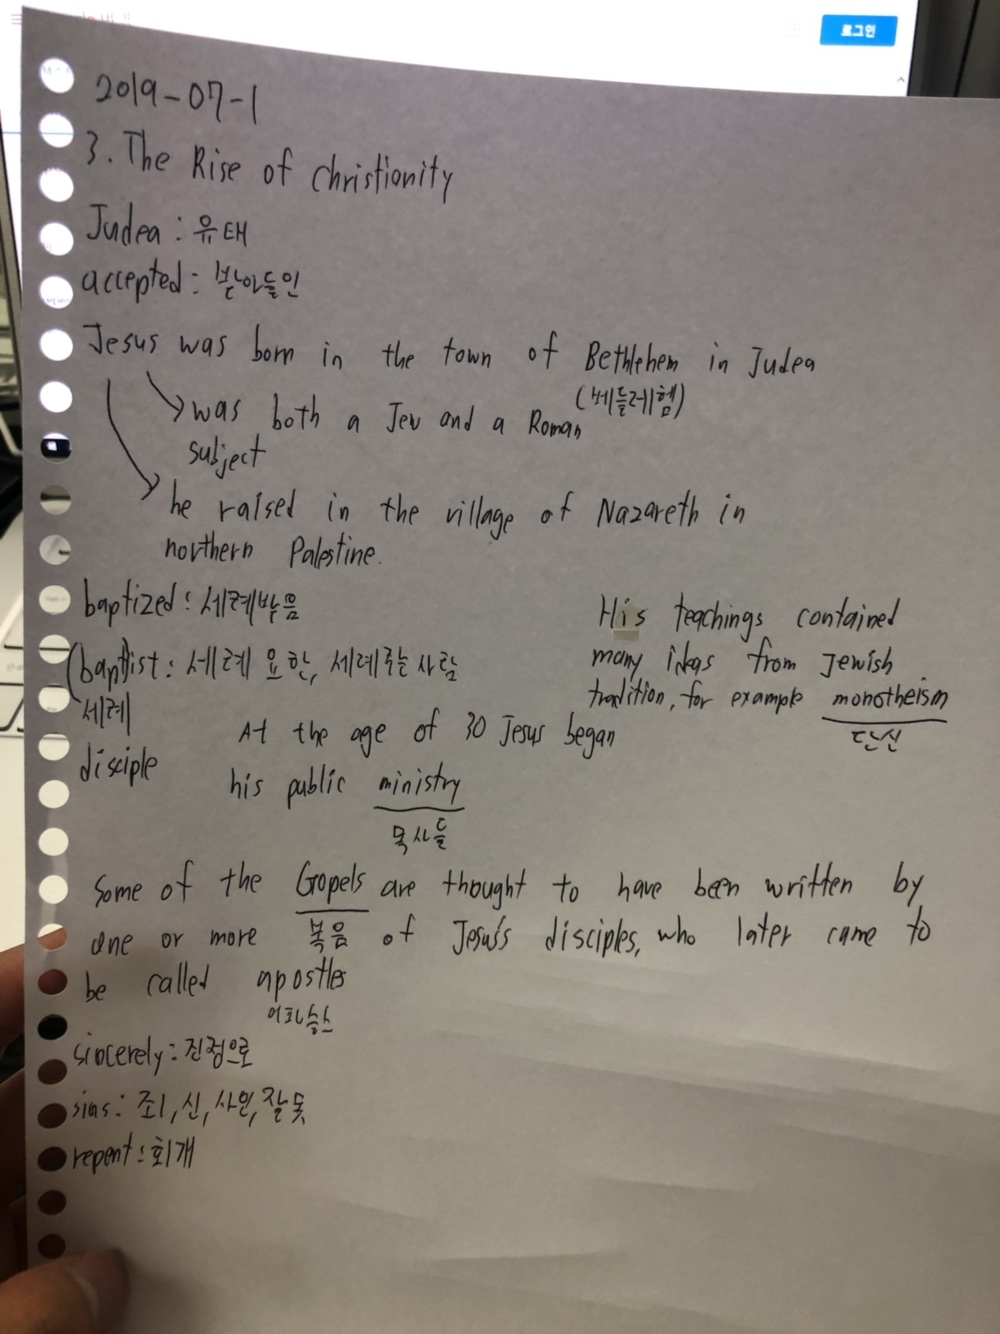 로그인
2019-07-1
3. The Rise of christionity
Judea : 유태
accepted : 받아들인
Jesus was born in the town of Bethlehem in Judea
(베들레헴)
was both a Jew and a Roman
subject
he raised in the village of Nazareth in
northern Palestine.
baptized : 세례받음
His teachings contained
many ideas from Jewish
tradition, for example monotheism
단신
(baptist : 세례 요한, 세례주는 사람
세례
disciple
At the age of 30 Jesus began
his public ministry
목사들
Some of the Gopels are thought to have been written by
one or more 복음 of Jesus's disciples, who later came to
be called apostles
어포슬스
sincerely : 진정으로
sins : 죄, 신, 사인, 잘못
repent : 회개